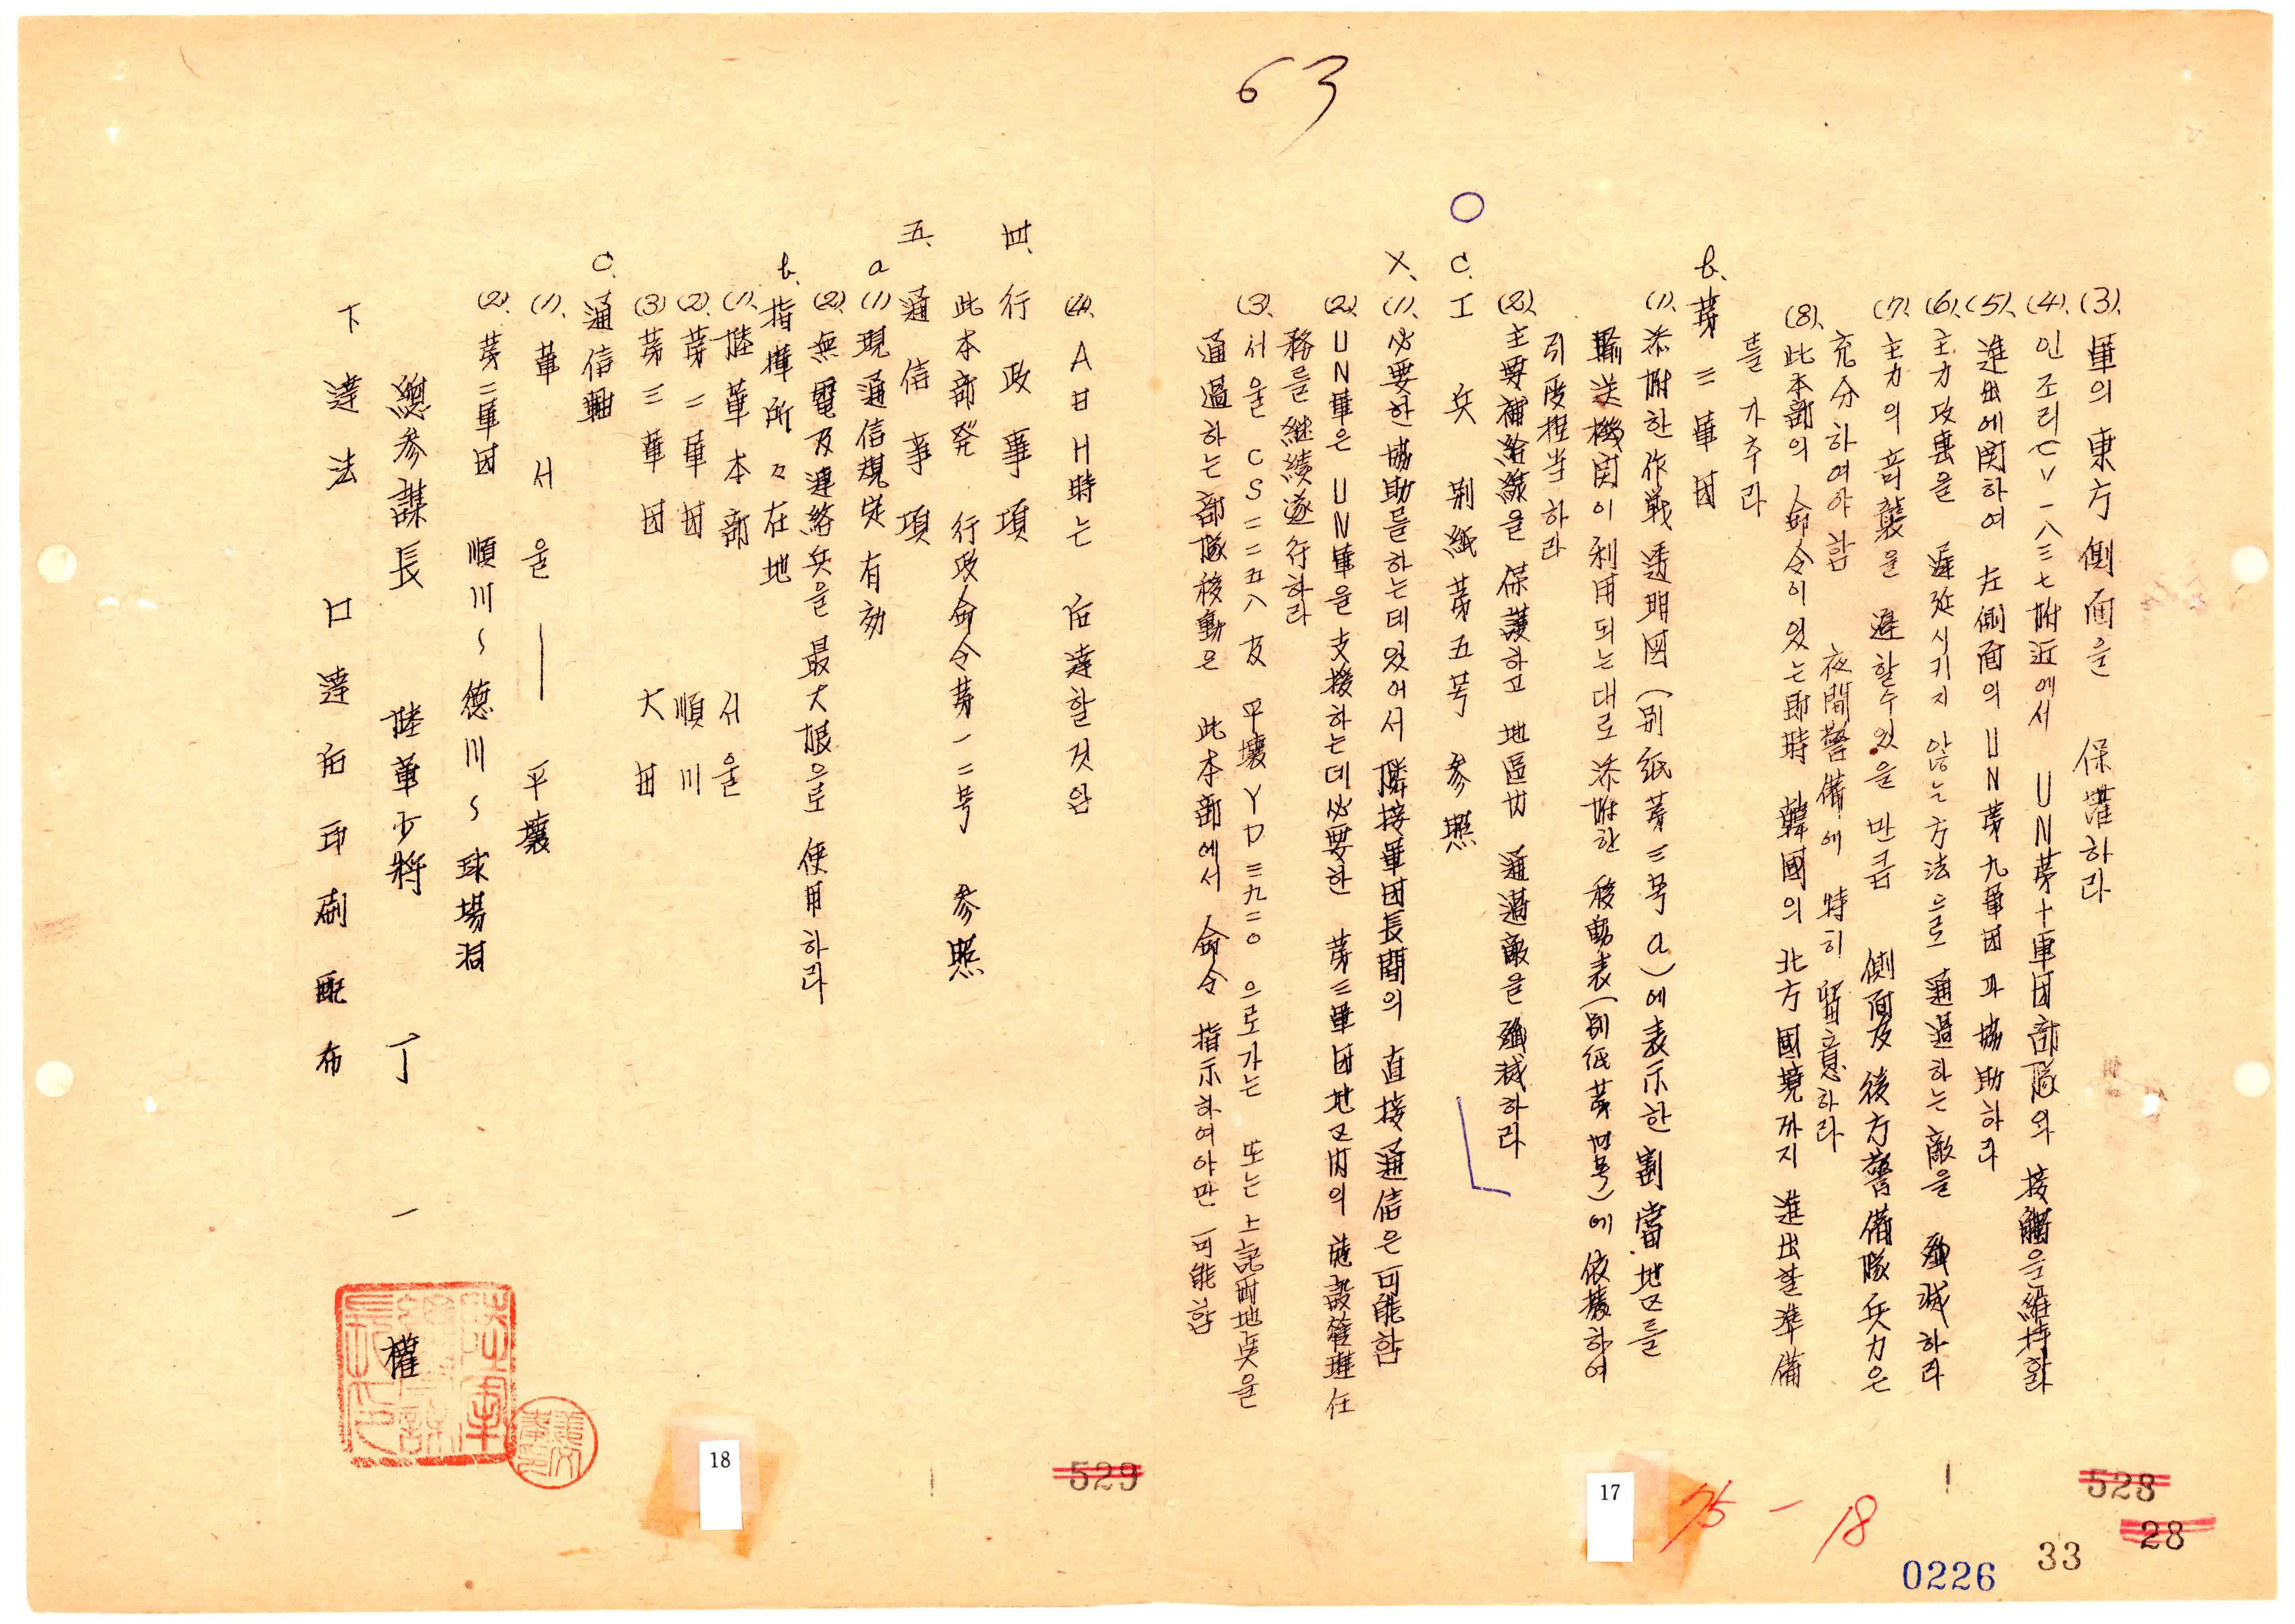 63
(3). 軍의 東方 側面을 保護하라
(4). 인조리 CV 一八三七 附近에서 UN 第十軍団 部隊와 接觸을 維持할
(5). 進出에 関하여 左側面의 UN 第九軍団과 協助하라
(6). 主力攻擊을 遲延시키지 않는 方法으로 通過하는 敵을 殲滅하라
(7). 主力의 奇襲을 避할수있을만큼 側面及 後方警備隊 兵力은
充分하여야함 夜間警備에 特히 留意하라
(8). 此本部의 命令이 있는 即時 韓國의 北方國境까지 進出할 準備
를 가추라
b. 第三軍団
(1). 添附한 作戰透明図(別紙第三号 a)에 表示한 割當 地区를
輸送機関이 利用되는대로 添附한 移動表(別紙第四号)에 依據하여
引受担当하라
(2). 主要補給線을 保護하고 地區内 通過敵을 殲滅하라
○
C. 工兵 別紙第五号 参照
X. (1). 必要한 協助를 하는데있어서 隣接軍団長間의 直接通信은 可能함
(2). UN軍은 UN軍을 支援하는데 必要한 第三軍団地区内의 施設管理任
務를 継続遂行하라
(3). 서울 CS 二二五八 及 平壤 YD 三九二〇 으로가는 또는 上記両地点을
通過하는 部隊移動은 此本部에서 命令 指示하여야만 可能함
17
75 - 18
528
28
33
0226
(4). A日H時는 后達할것임
四. 行政事項
此本部発 行政命令第一二号 参照
五. 通信事項
a (1) 現通信規定 有効
(2). 無電及連絡兵을 最大限으로 使用하라
b. 指揮所々在地
(1). 陸軍本部 서울
(2). 第二軍団 順川
(3) 第三軍団 大田
C. 通信軸
(1). 軍 서울 — 平壤
(2). 第二軍団 順川~德川~球場洞
總参謀長 陸軍少將 丁一權
下達法 口達后印刷配布
18
529